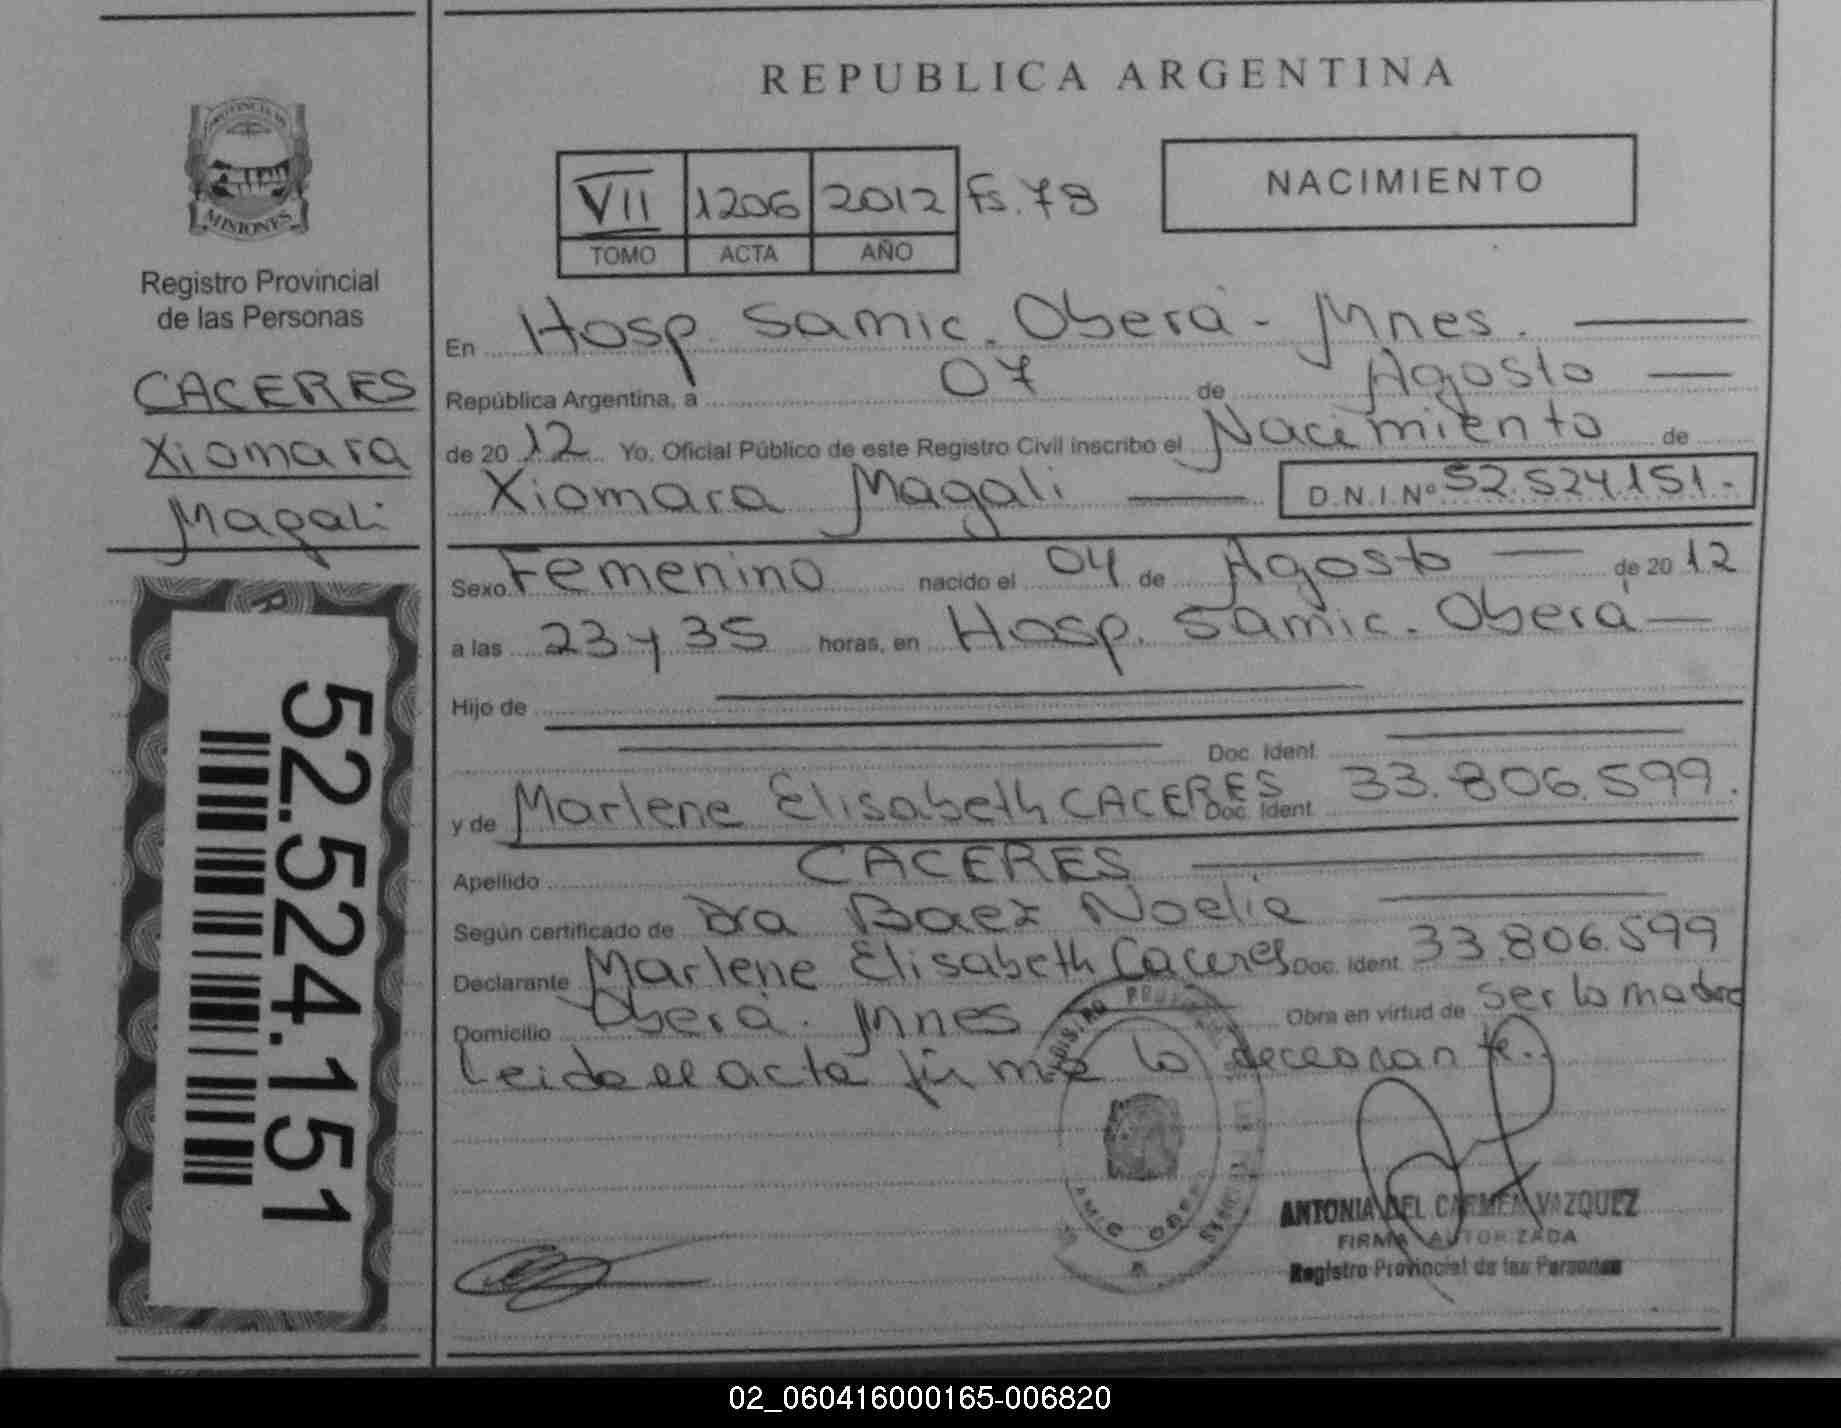 REPUBLICA ARGENTINA
PROVINCIA DE
MISIONES
Registro Provincial
de las Personas
CACERES
Xiomara
Magali
52.524.151
VII 1206 2012 Fs. 78
TOMO ACTA AÑO
NACIMIENTO
En Hosp. Samic. Oberá - Mnes.
República Argentina, a 07 de Agosto
de 2012 Yo, Oficial Público de este Registro Civil inscribo el Nacimiento de
Xiomara Magali D.N.I.Nº 52.524.151.-
Sexo Femenino nacido el 04 de Agosto de 2012
a las 23 y 35 horas, en Hosp. Samic. Oberá
Hijo de
Doc. Ident.
y de Marlene Elisabeth CACERES Doc. Ident. 33.806.599.
Apellido CACERES
Según certificado de Dra Baez Noelia
Declarante Marlene Elisabeth Caceres Doc. Ident. 33.806.599
Domicilio Oberá. Mnes Obra en virtud de ser la madre
Leida el acta firma la declarante.
ANTONIA DEL CARMEN VAZQUEZ
FIRMA AUTORIZADA
Registro Provincial de las Personas
02_060416000165-006820